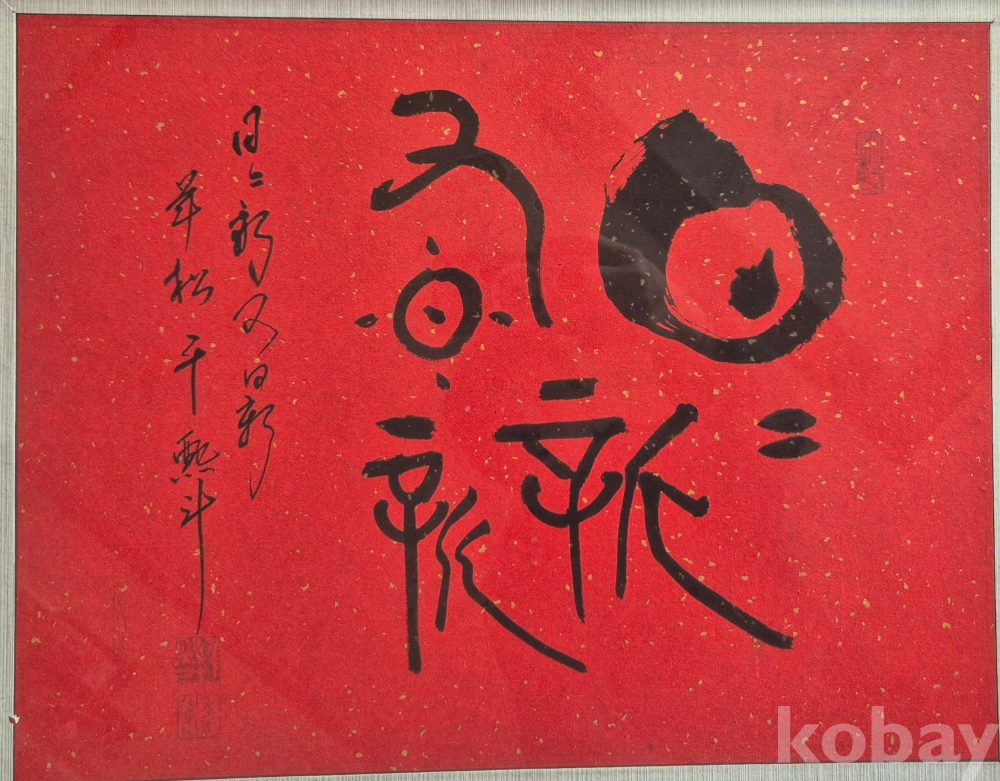 日〻新
又日新
日〻新又日新
松 斗
kobay